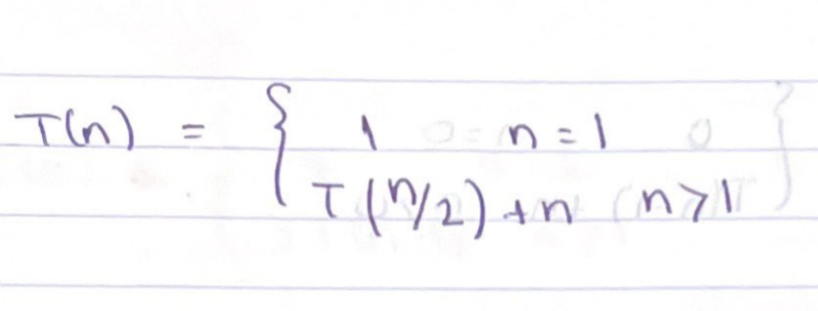 T(n) = { 1 n = 1
T(n/2) + n n > 1